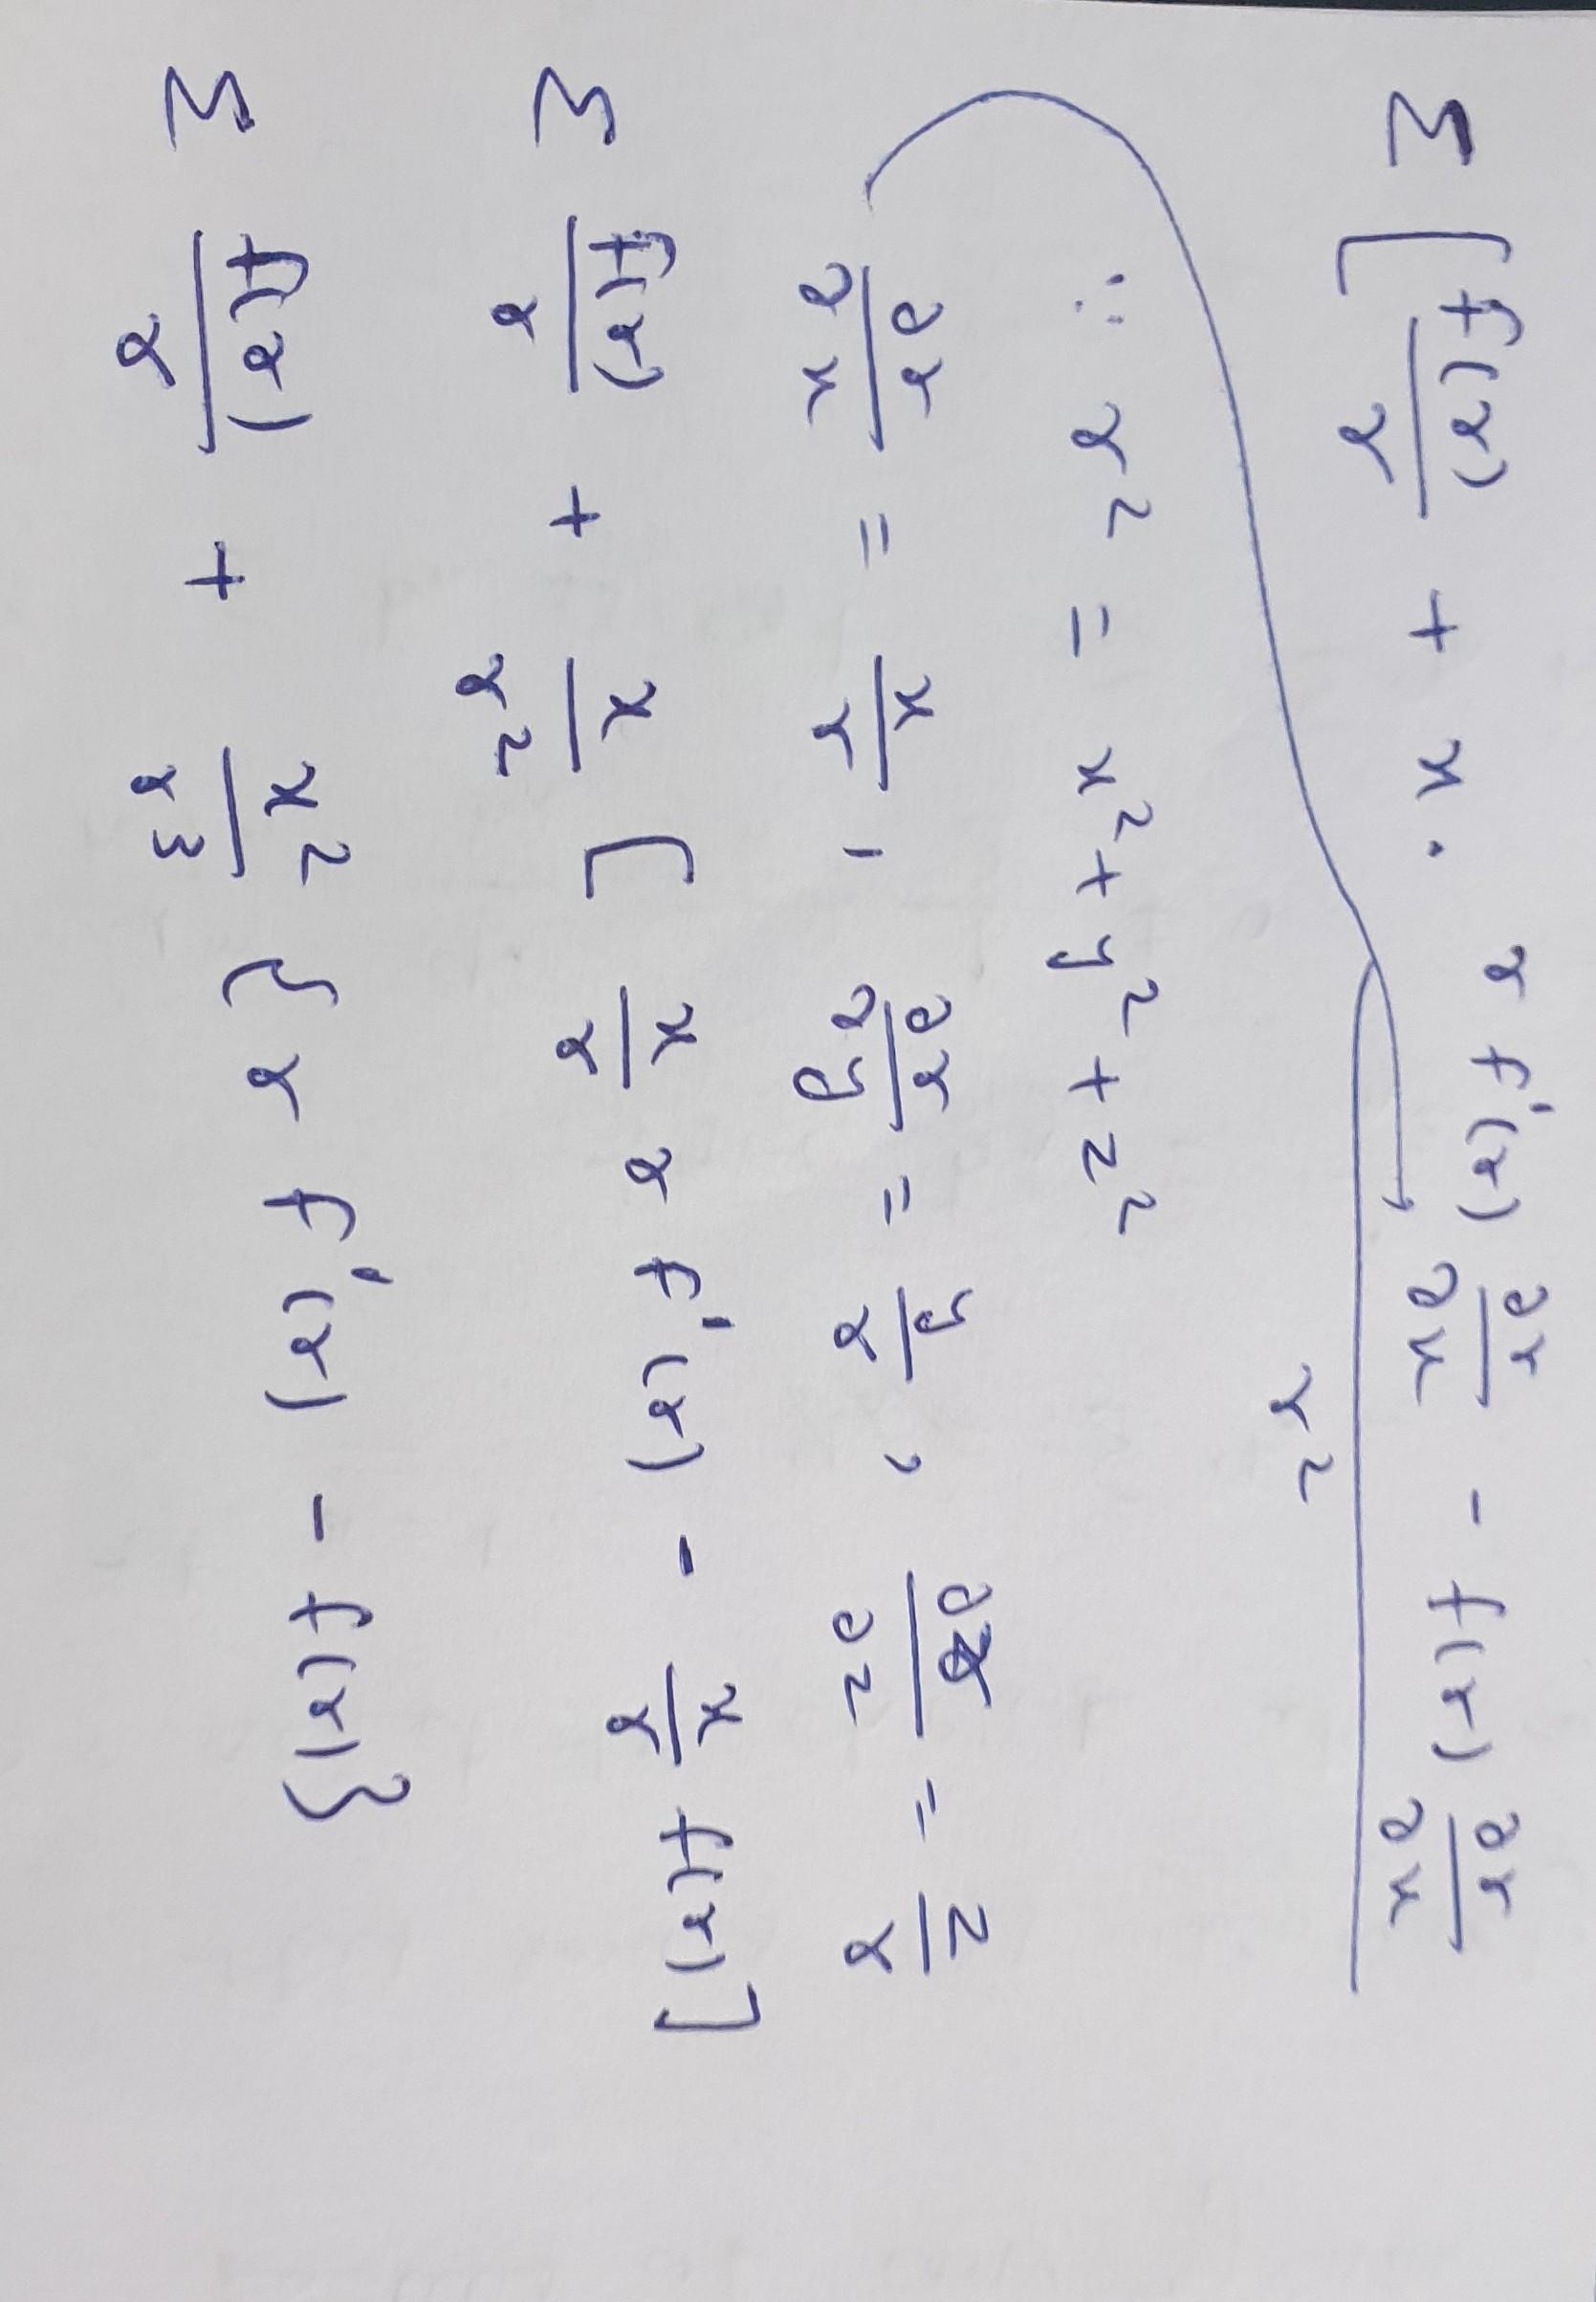 Σ [ f(r)/r + x · (r f'(r) ∂r/∂x - f(r) ∂r/∂x)/r²
∴ r² = x² + y² + z²
∂r/∂x = x/r , ∂r/∂y = y/r , ∂r/∂z = z/r
Σ f(r)/r + x/r² [ x/r r f'(r) - x/r f(r) ]
Σ f(r)/r + x²/r³ { r f'(r) - f(r) }